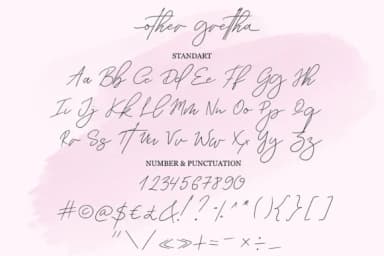 other gretha
STANDART
Aa Bb Cc Dd Ee Ff Gg Hh
Ii Jj Kk Ll Mm Nn Oo Pp Qq
Rr Ss Tt Uu Vv Ww Xx Yy Zz
NUMBER & PUNCTUATION
1234567890
#©@$€£&!?%^*(){}[]
"\/«»+=-×÷_